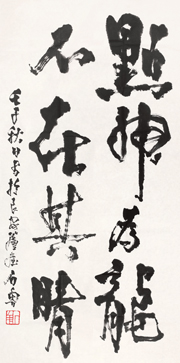 點神為龍
不在其睛
壬子秋日書於長安石魯